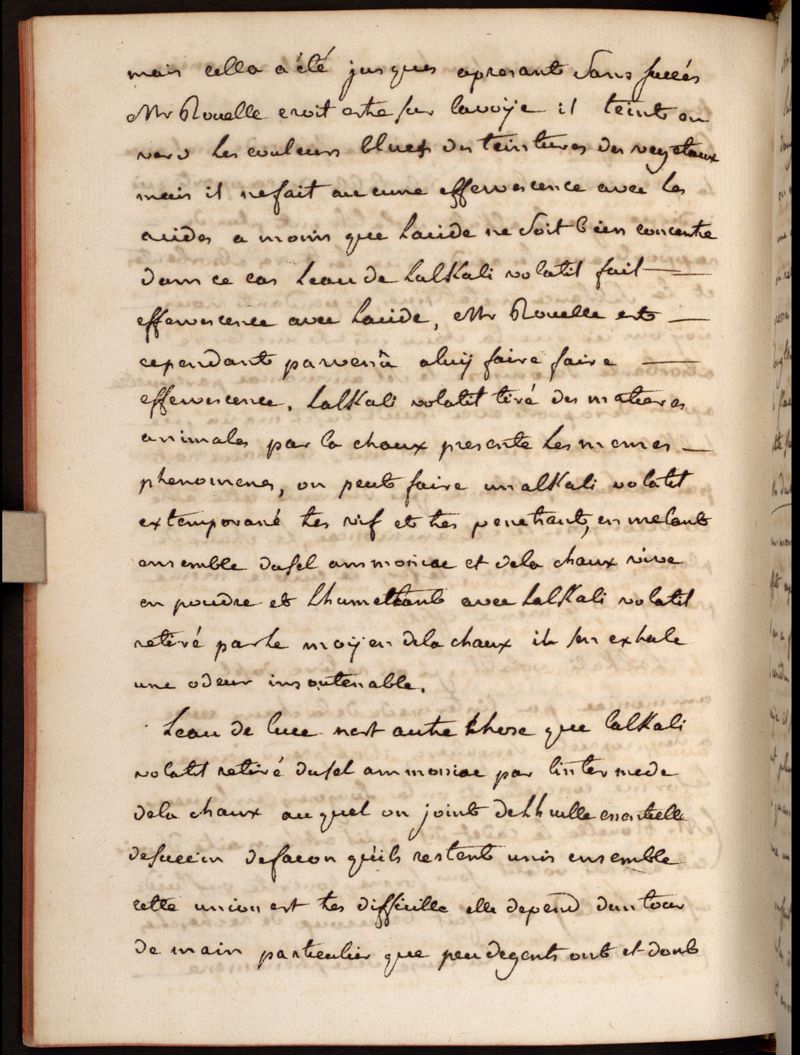 mais cella a été jusques apresant sans succés
Mr Rouelle croit estre sur lavoije il teint en
verd les couleurs blues des teintures des vegetaux
mais il nefait aucune effervescence avec les
acides a moins que lacide ne soit bien concentré
dans ce cas leau de lalkali volatil fait
effervescence avec lacide, Mr Rouelle est
cependant parvenû aluij faire faire
effervescence. lalkali volatil tiré des matieres
animales par la chaux presente les memes
phenomenes, on peut faire unalkali volatil
extemporané tres vif et tres penetrant, en melant
ensemble dusel ammoniac et dela chaux vive
en poudre et lhumettant avec lalkali volatil
retiré parle moijen dela chaux il sen exhale
une odeur insoutenable.
Leau de luce nest autre chose que lalkali
volatil retiré dusel ammoniac par lintermede
dela chaux auquel on joint delhuille essentielle
desuccin defacon quils restent unis ensemble
cette union est tres difficille elle depend duntour
de main particulier que peu degents ont et dont